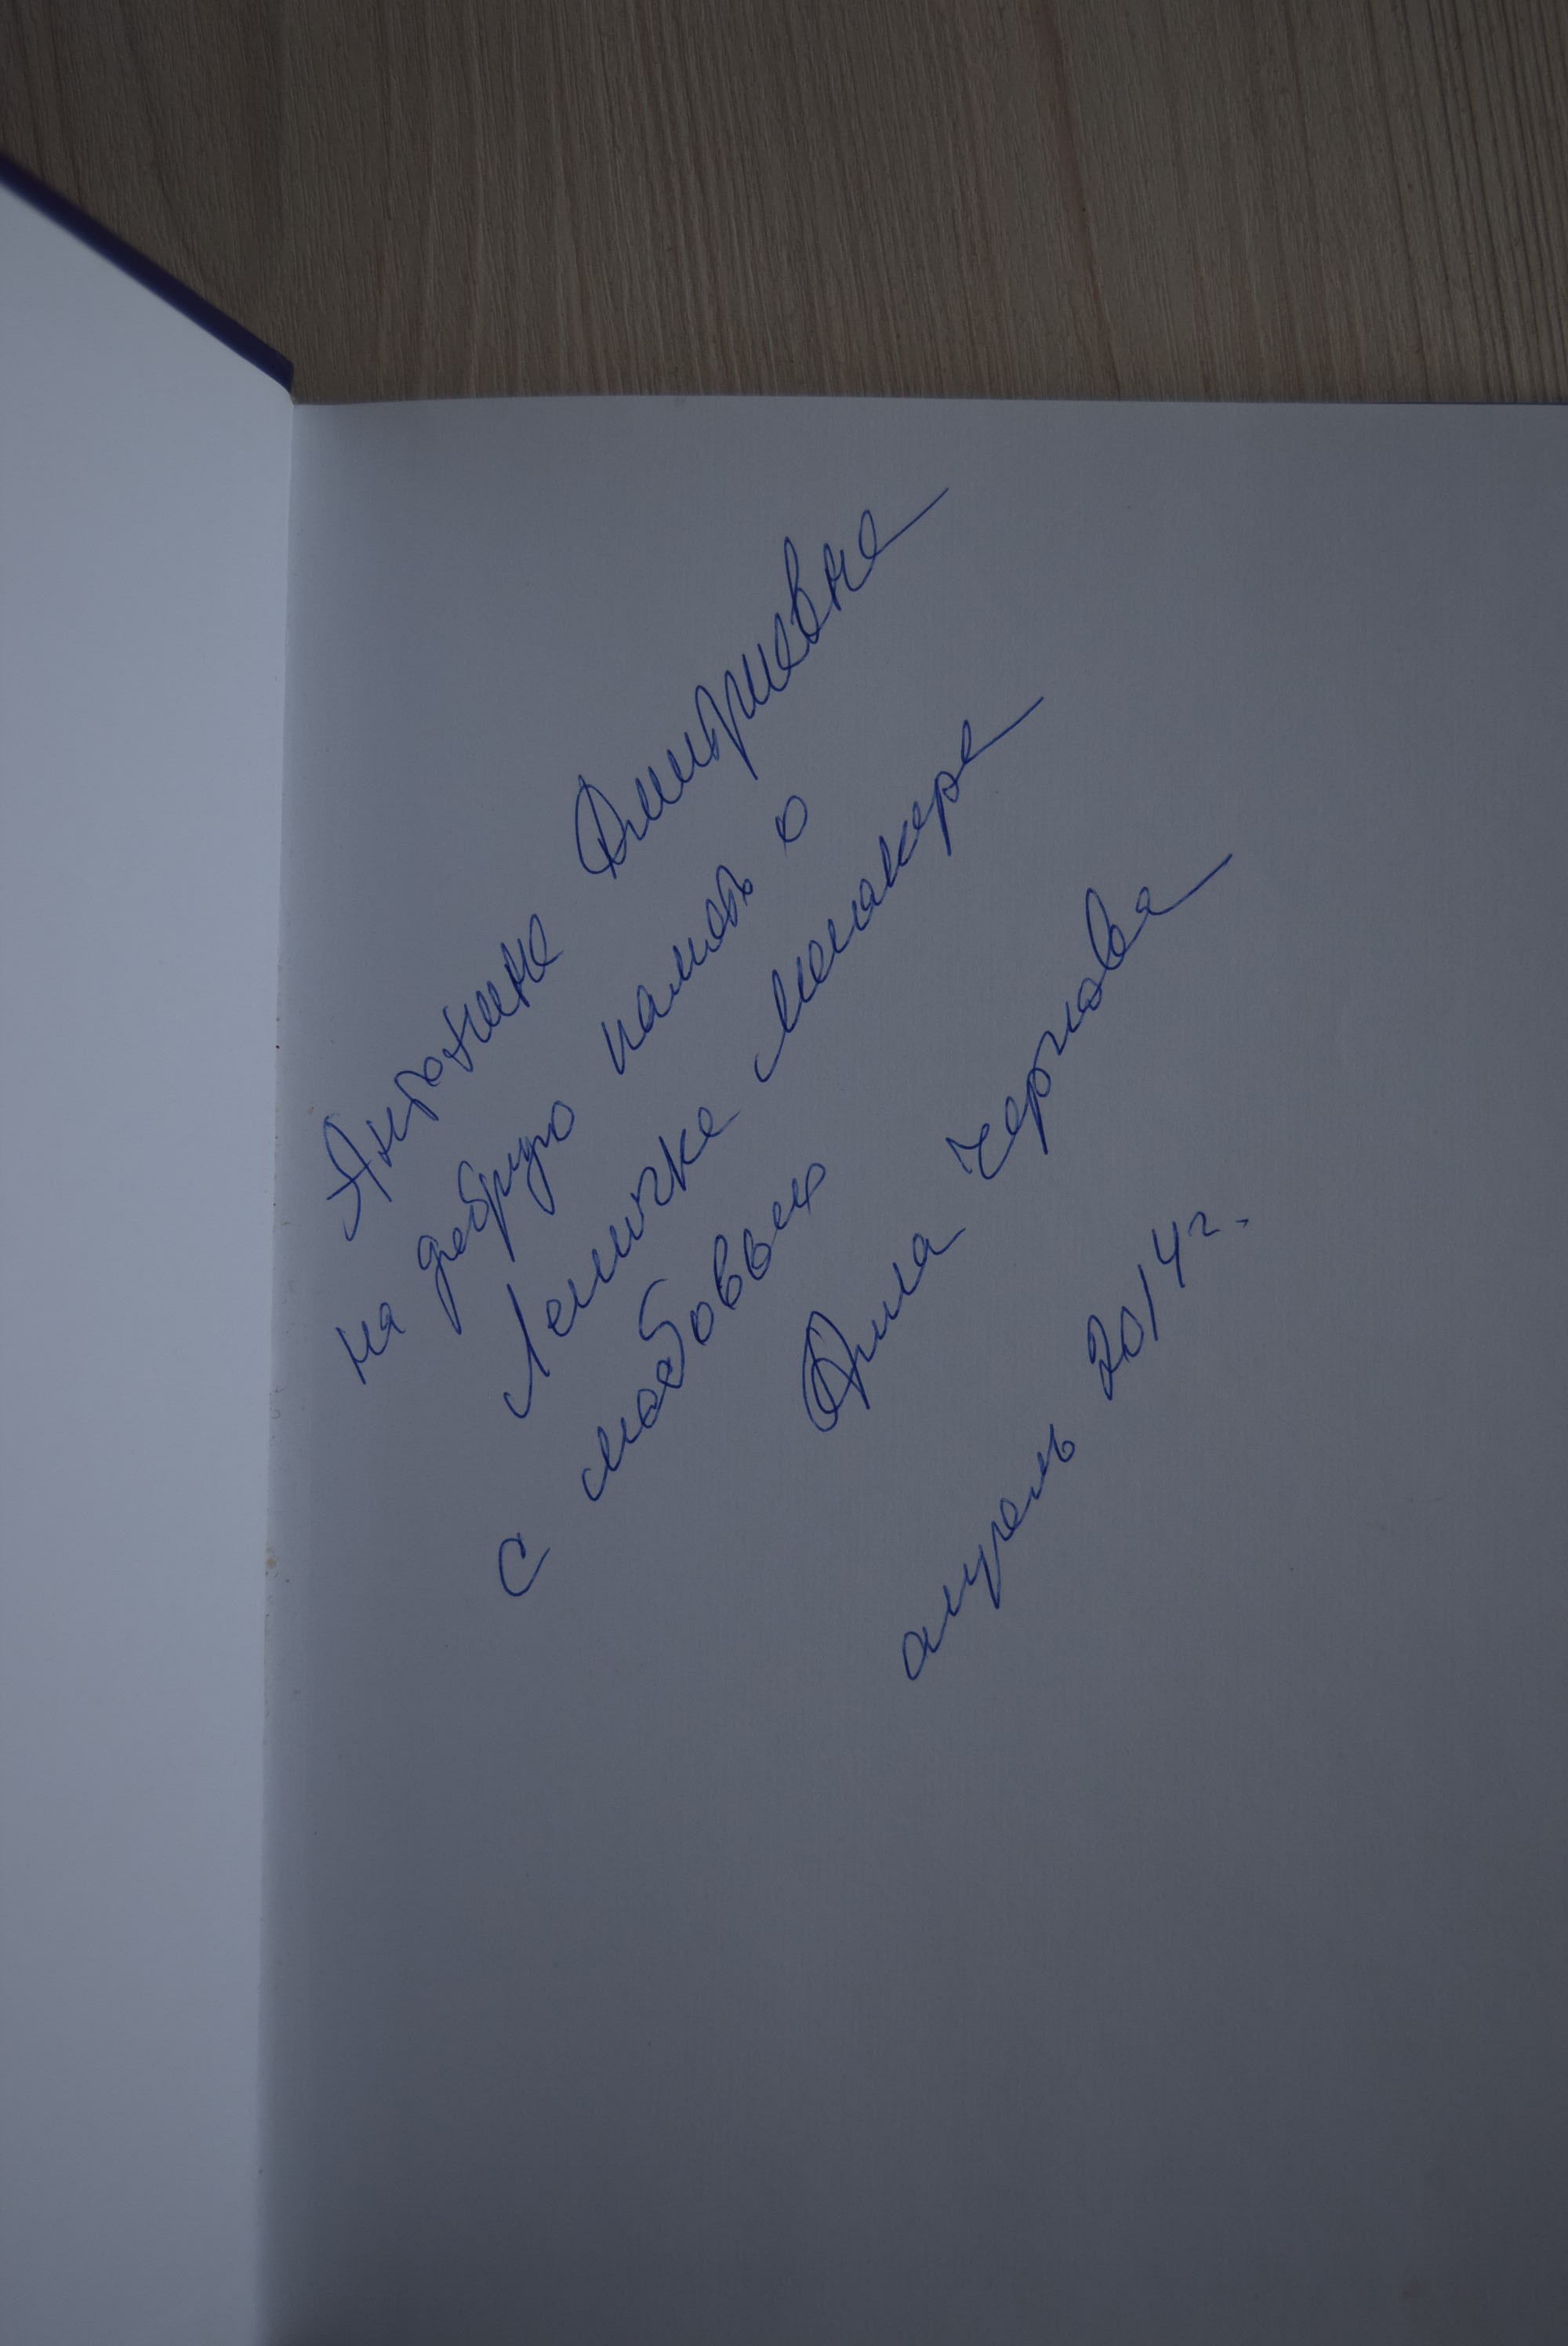 Антонине Дмитриевне
на добрую память о
Леничке Менакере
с любовью
Алла Чернова
апрель 2014г.